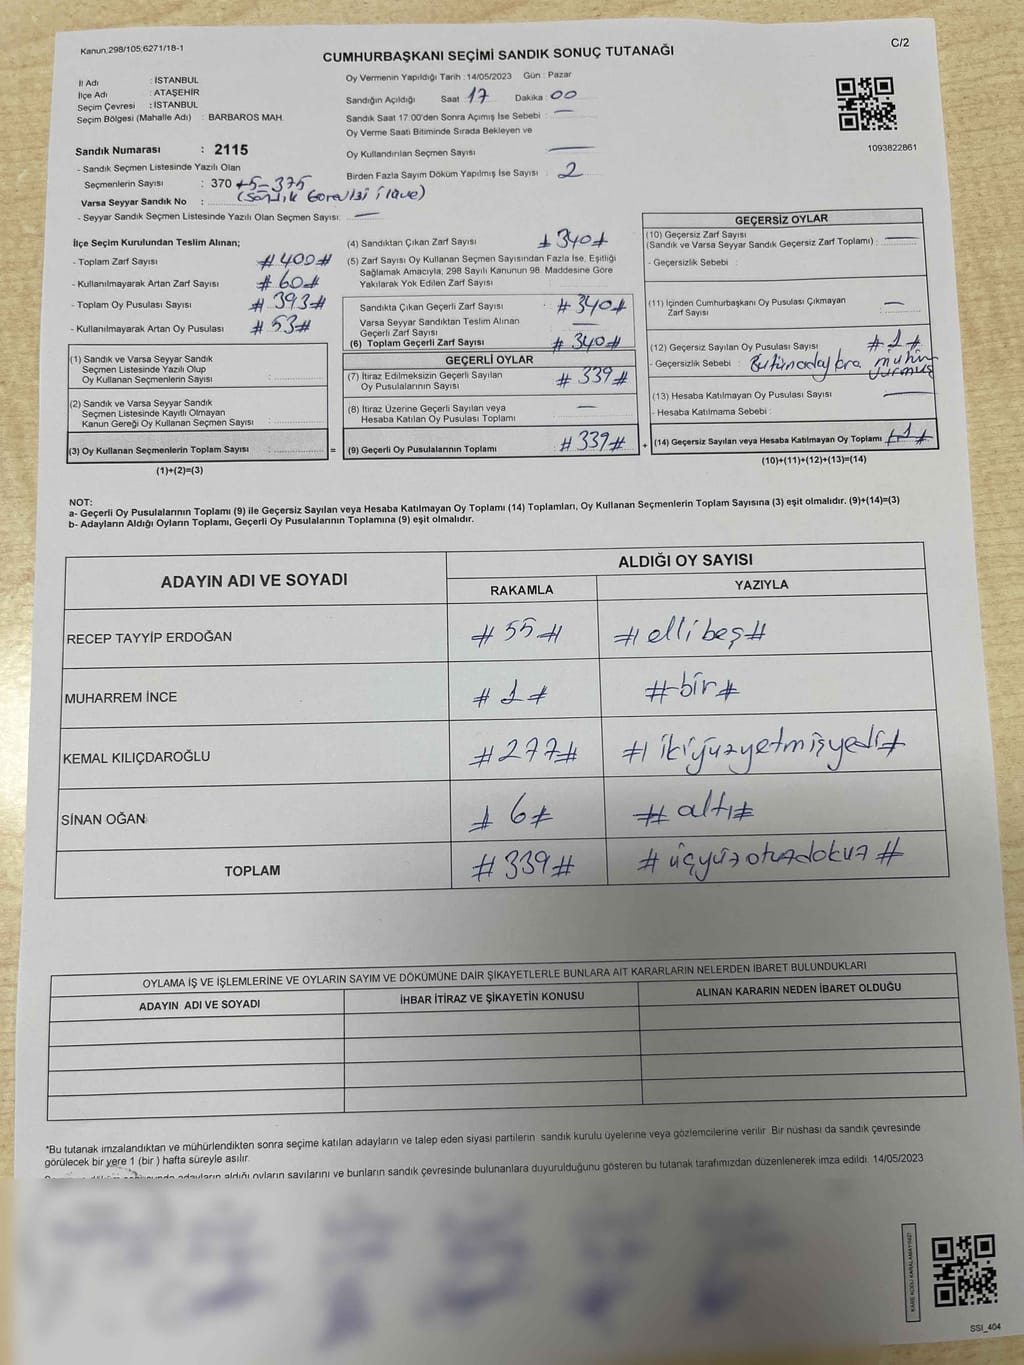 Kanun;298/105;6271/18-1
C/2
CUMHURBAŞKANI SEÇİMİ SANDIK SONUÇ TUTANAĞI
İl Adı : İSTANBUL
İlçe Adı : ATAŞEHİR
Seçim Çevresi : İSTANBUL
Seçim Bölgesi (Mahalle Adı) : BARBAROS MAH.
Sandık Numarası : 2115
- Sandık Seçmen Listesinde Yazılı Olan
Seçmenlerin Sayısı : 370 +5=375
Varsa Seyyar Sandık No : (Sandık Görevlisi ilave)
- Seyyar Sandık Seçmen Listesinde Yazılı Olan Seçmen Sayısı: —
Oy Vermenin Yapıldığı Tarih : 14/05/2023 Gün : Pazar
Sandığın Açıldığı Saat 17 Dakika 00
Sandık Saat 17:00'den Sonra Açımış İse Sebebi : —
Oy Verme Saati Bitiminde Sırada Bekleyen ve
Oy Kullandırılan Seçmen Sayısı —
Birden Fazla Sayım Döküm Yapılmış İse Sayısı : 2
1093822861
İlçe Seçim Kurulundan Teslim Alınan;
- Toplam Zarf Sayısı #400#
- Kullanılmayarak Artan Zarf Sayısı #60#
- Toplam Oy Pusulası Sayısı #393#
- Kullanılmayarak Artan Oy Pusulası #53#
(1) Sandık ve Varsa Seyyar Sandık
Seçmen Listesinde Yazılı Olup
Oy Kullanan Seçmenlerin Sayısı :
(2) Sandık ve Varsa Seyyar Sandık
Seçmen Listesinde Kayıtlı Olmayan
Kanun Gereği Oy Kullanan Seçmen Sayısı :
(3) Oy Kullanan Seçmenlerin Toplam Sayısı : =
(1)+(2)=(3)
(4) Sandıktan Çıkan Zarf Sayısı #340#
(5) Zarf Sayısı Oy Kullanan Seçmen Sayısından Fazla İse, Eşitliği
Sağlamak Amacıyla; 298 Sayılı Kanunun 98. Maddesine Göre
Yakılarak Yok Edilen Zarf Sayısı :
Sandıkta Çıkan Geçerli Zarf Sayısı : #340#
Varsa Seyyar Sandıktan Teslim Alınan
Geçerli Zarf Sayısı —
(6) Toplam Geçerli Zarf Sayısı : #340#
GEÇERLİ OYLAR
(7) İtiraz Edilmeksizin Geçerli Sayılan
Oy Pusulalarının Sayısı : #339#
(8) İtiraz Üzerine Geçerli Sayılan veya
Hesaba Katılan Oy Pusulası Toplamı —
(9) Geçerli Oy Pusulalarının Toplamı #339# +
GEÇERSİZ OYLAR
(10) Geçersiz Zarf Sayısı
(Sandık ve Varsa Seyyar Sandık Geçersiz Zarf Toplamı) : —
- Geçersizlik Sebebi :
(11) İçinden Cumhurbaşkanı Oy Pusulası Çıkmayan
Zarf Sayısı : —
(12) Geçersiz Sayılan Oy Pusulası Sayısı #1#
- Geçersizlik Sebebi : Bütün adaylara mühür
vurmuş
(13) Hesaba Katılmayan Oy Pusulası Sayısı —
- Hesaba Katılmama Sebebi :
(14) Geçersiz Sayılan veya Hesaba Katılmayan Oy Toplamı #1#
(10)+(11)+(12)+(13)=(14)
NOT:
a- Geçerli Oy Pusulalarının Toplamı (9) ile Geçersiz Sayılan veya Hesaba Katılmayan Oy Toplamı (14) Toplamları, Oy Kullanan Seçmenlerin Toplam Sayısına (3) eşit olmalıdır. (9)+(14)=(3)
b- Adayların Aldığı Oyların Toplamı, Geçerli Oy Pusulalarının Toplamına (9) eşit olmalıdır.
ADAYIN ADI VE SOYADI
ALDIĞI OY SAYISI
RAKAMLA YAZIYLA
RECEP TAYYİP ERDOĞAN #55# #ellibeş#
MUHARREM İNCE #1# #bir#
KEMAL KILIÇDAROĞLU #277# #ikiyüzyetmişyedi#
SİNAN OĞAN #6# #altı#
TOPLAM #339# #üçyüzotuzdokuz#
OYLAMA İŞ VE İŞLEMLERİNE VE OYLARIN SAYIM VE DÖKÜMÜNE DAİR ŞİKAYETLERLE BUNLARA AİT KARARLARIN NELERDEN İBARET BULUNDUKLARI
ADAYIN ADI VE SOYADI İHBAR İTİRAZ VE ŞİKAYETİN KONUSU ALINAN KARARIN NEDEN İBARET OLDUĞU
*Bu tutanak imzalandıktan ve mühürlendikten sonra seçime katılan adayların ve talep eden siyasi partilerin sandık kurulu üyelerine veya gözlemcilerine verilir. Bir nüshası da sandık çevresinde
görülecek bir yere 1 (bir) hafta süreyle asılır.
adayların aldığı oyların sayılarını ve bunların sandık çevresinde bulunanlara duyurulduğunu gösteren bu tutanak tarafımızdan düzenlenerek imza edildi. 14/05/2023
KARE KODU KARALAMAYINIZ!
SSI_404